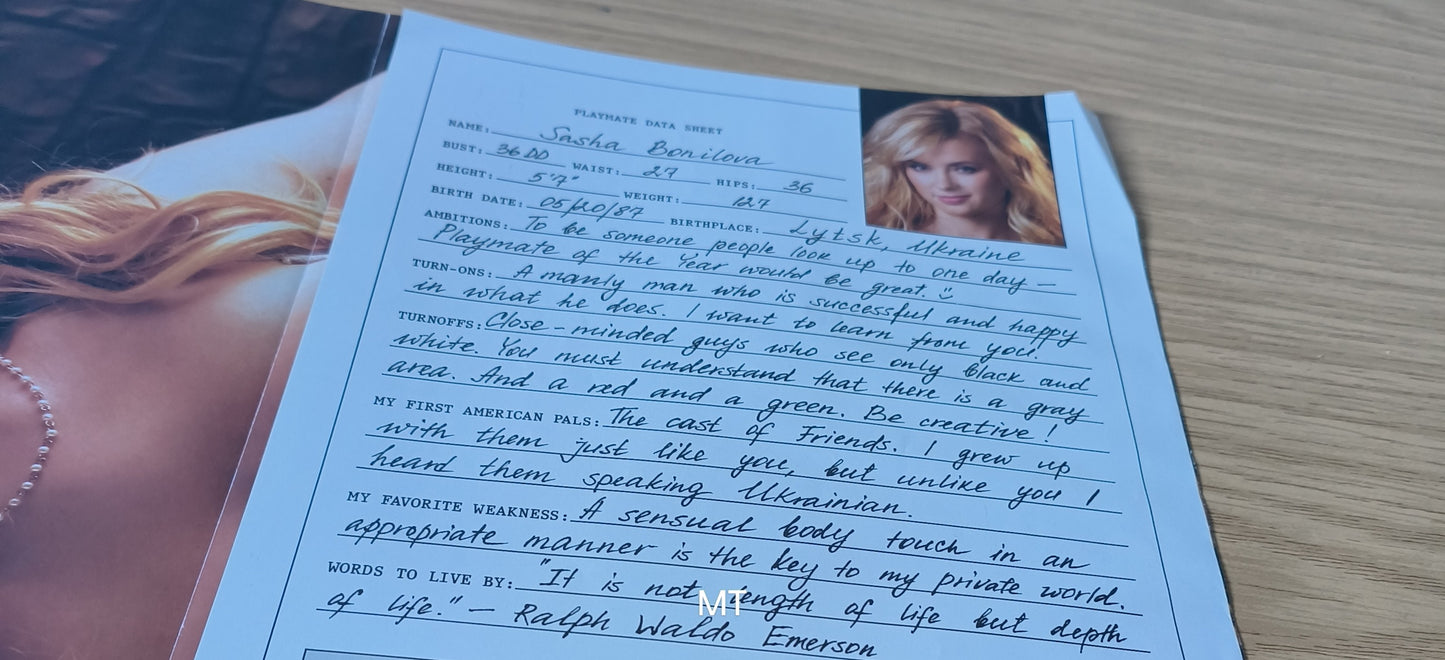 PLAYMATE DATA SHEET
NAME: Sasha Bonilova
BUST: 36 DD WAIST: 27 HIPS: 36
HEIGHT: 5'7" WEIGHT: 127
BIRTH DATE: 05/20/87 BIRTHPLACE: Lytsk, Ukraine
AMBITIONS: To be someone people look up to one day –
Playmate of the Year would be great. ☺
TURN-ONS: A manly man who is successful and happy
in what he does. I want to learn from you.
TURNOFFS: Close-minded guys who see only black and
white. You must understand that there is a gray
area. And a red and a green. Be creative!
MY FIRST AMERICAN PALS: The cast of Friends. I grew up
with them just like you, but unlike you I
heard them speaking Ukrainian.
MY FAVORITE WEAKNESS: A sensual body touch in an
appropriate manner is the key to my private world.
WORDS TO LIVE BY: "It is not length of life but depth
of life." – Ralph Waldo Emerson
MT